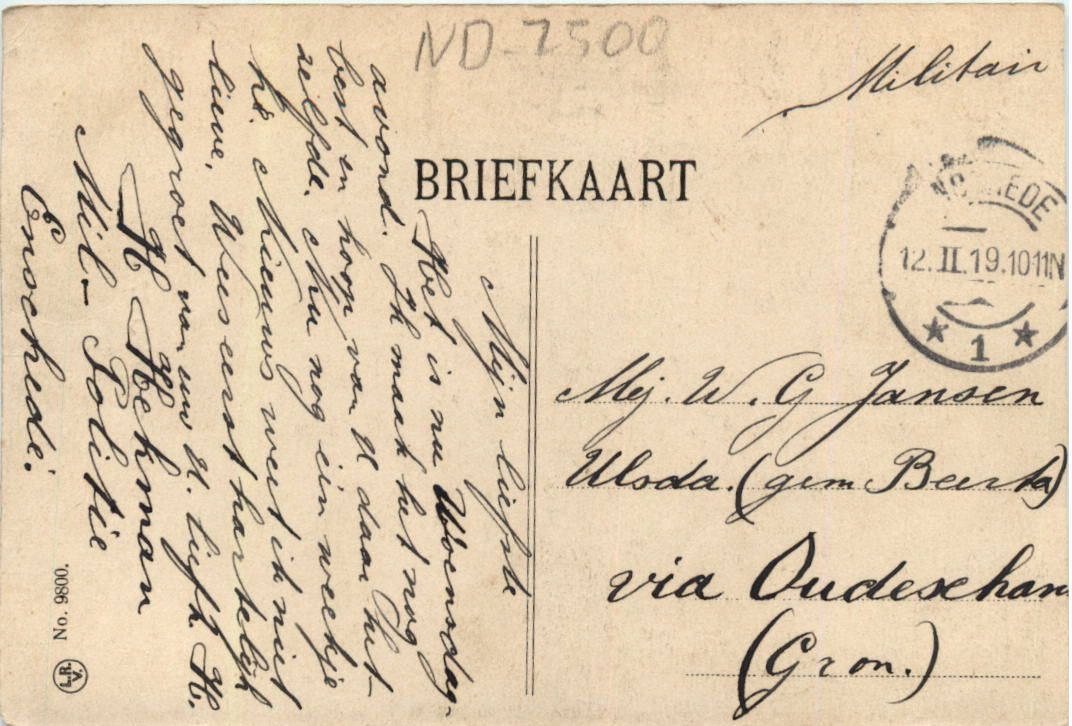 ND-7500
Militair
BRIEFKAART
12.II.19.10-11N
1
Mijn liefste
Het is nu Woensdag-
avond. Ik maak het nog
best en hoop van U daar het-
zelfde. Nu nog een weekje
hè. Nieuws weet ik niet
lieve, Wees eerst hartelijk
gegroet van uw U. liefh. H.
H Hekman
Mil- Politie
Enschede.
Mej. W. G Jansen
Ulsda. (gem Beerta)
via Oudeschans
(Gron.)
No. 9800.
L.R.
V.